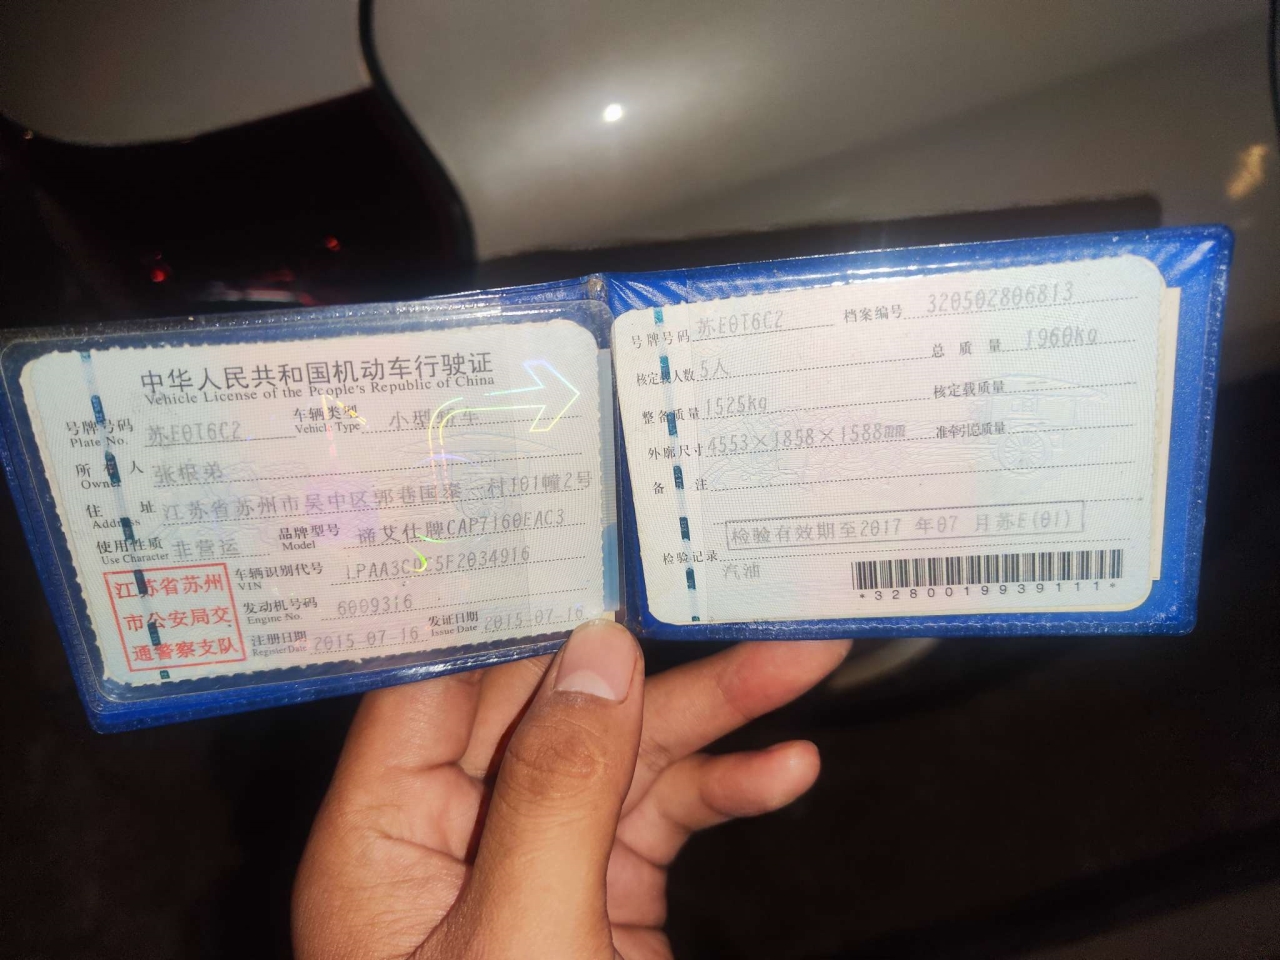 中华人民共和国机动车行驶证
Vehicle License of the People's Republic of China
号牌号码 苏E0T6C2 车辆类型 小型轿车
Plate No. Vehicle Type
所有人 张根弟
Owner
住 址 江苏省苏州市吴中区郭巷国泰一村101幢2号
Address
使用性质 非营运 品牌型号 谛艾仕牌CAP7160EAC3
Use Character Model
江苏省苏州
市公安局交
通警察支队
车辆识别代号
VIN
发动机号码 6009316
Engine No.
注册日期 2015-07-16 发证日期 2015-07-16
Register Date Issue Date
号牌号码 苏E0T6C2 档案编号 320502806813
核定载人数 5人 总 质 量 1960kg
整备质量 1525kg 核定载质量
外廓尺寸 4553×1858×1588mm 准牵引总质量
备 注
检验有效期至2017 年07 月苏E(01)
检验记录
汽油
*3280019939111*